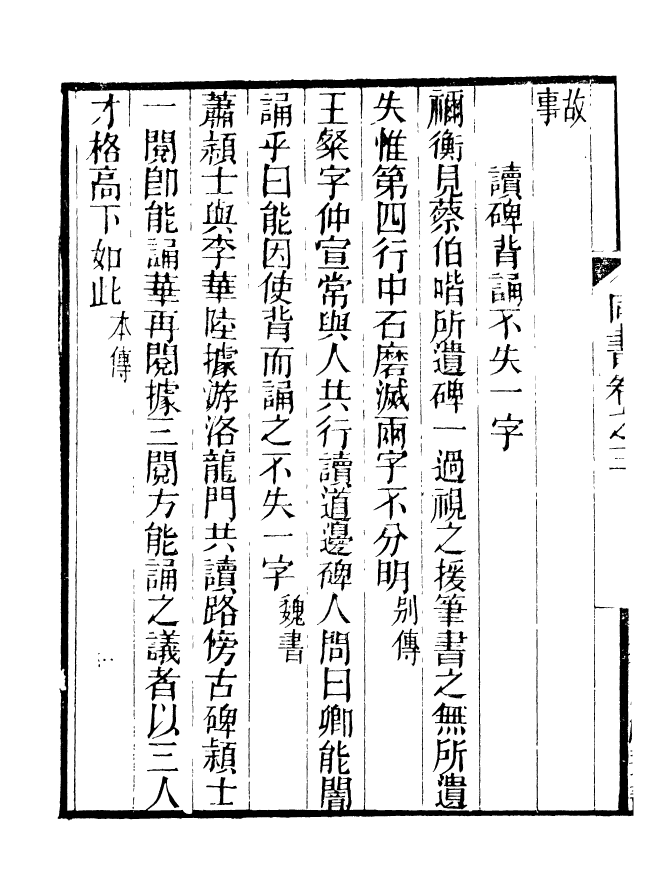 故事
讀碑背誦不失一字
禰衡見蔡伯喈所遺碑一過視之援筆書之無所遺
失惟第四行中石磨滅兩字不分明別傳
王粲字仲宣常與人共行讀道邊碑人問曰卿能闇
誦乎曰能因使背而誦之不失一字魏書
蕭頴士與李華陸據游洛龍門共讀路傍古碑頴士
一閱即能誦華再閱據三閱方能誦之議者以三人
才格高下如此本傳
同書卷之三